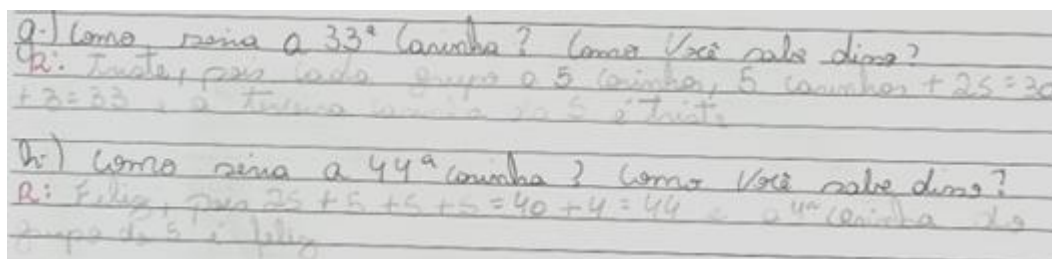 g.) Como seria a 33ª Carinha? Como Você sabe disso?
R: Triste, pois cada grupo a 5 carinhas, 5 carinhas + 25 = 30
+ 3 = 33, a terceira carinha do 5 é triste
h.) Como seria a 44ª carinha? Como Você sabe disso?
R: Feliz, pois 25 + 5 + 5 + 5 = 40 + 4 = 44 a 4ª carinha do
grupo do 5 é feliz